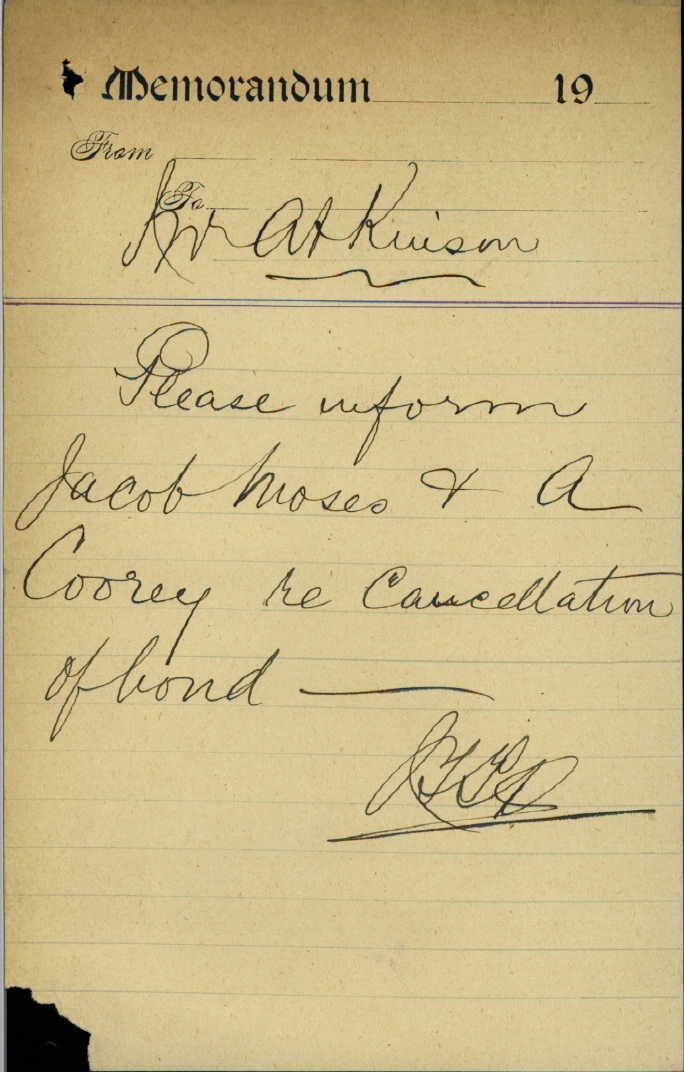 Memorandum 19
From
To
Mr Atkinson
Please inform
Jacob Moses & A
Coorey re Cancellation
of bond —